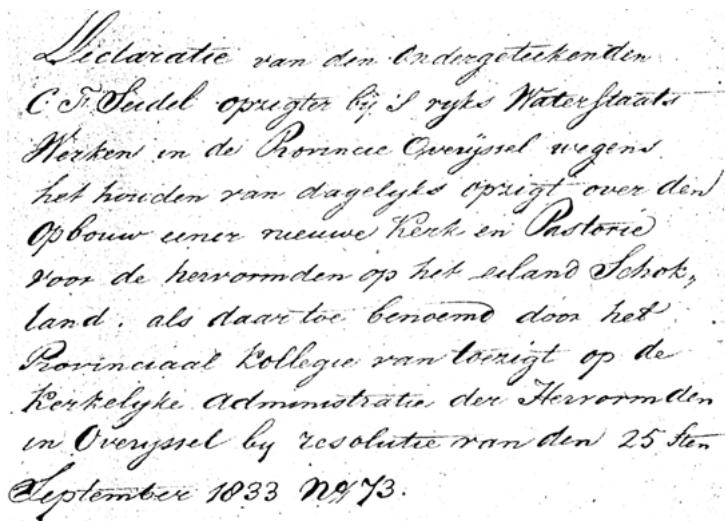 Declaratie van den Ondergeteekenden
C. F. Seidel opzigter bij 's ryks Waterstaats
Werken in de Provincie Overijssel wegens
het houden van dagelyks opzigt over den
Opbouw eener nieuwe Kerk en Pastorie
voor de hervormden op het eiland Schok„
land. als daartoe benoemd door het
Provinciaal Kollegie van toezigt op de
Kerkelyke Administratie der Hervormden
in Overyssel by resolutie van den 25 sten
September 1833 No 73.